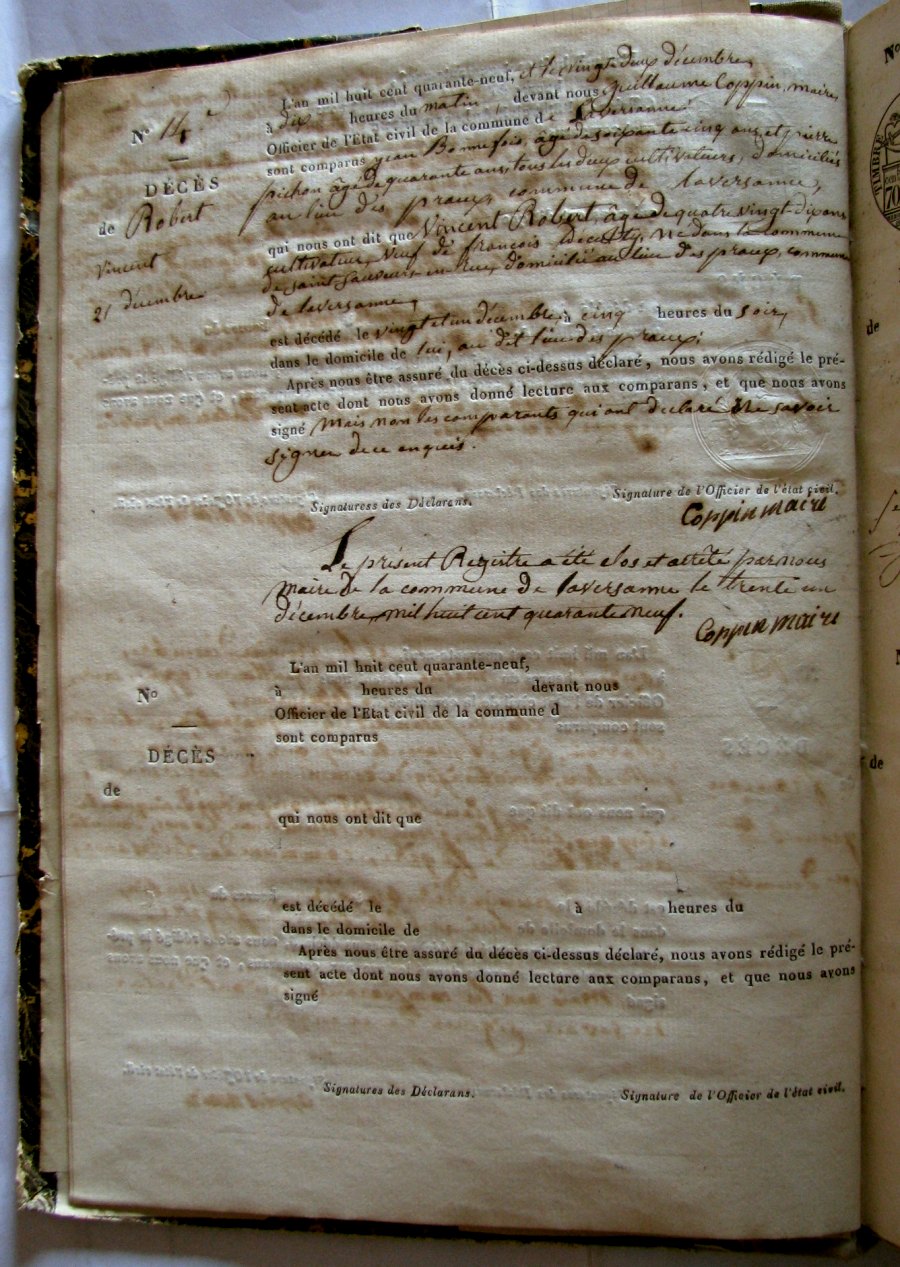 No 14.e
DÉCÈS
de Robert
Vincent
21 décembre
L'an mil huit cent quarante-neuf, et le vingt deux décembre
à dix heures du matin, devant nous Guillaume Coppin, maire,
Officier de l'Etat civil de la commune de Laversanne.
sont comparus jean Bonnefois, âgé de soixante cinq ans, et pierre
pichon âgé de quarante ans, tous les deux cultivateurs, domiciliés
au lieu des praux, commune de Laversanne,
qui nous ont dit que Vincent Robert, âgé de quatre vingt dix ans
cultivateur, veuf de françois Décotty, né dans la commune
de saint Sauveur en rue, domicilié au lieu des praux, commune
de Laversanne,
est décédé le vingt et un décembre, à cinq heures du soir,
dans le domicile de lui, au dit lieu des praux;
Après nous être assuré du décès ci-dessus déclaré, nous avons rédigé le pré-
sent acte dont nous avons donné lecture aux comparans, et que nous avons
signé mais non les comparants qui ont déclaré ne savoir
signer de ce enquis.
Signaturess des Déclarans. Signature de l'Officier de l'état civil.
Coppin maire
Le présent Registre a été clos et arrêté par nous
maire de la commune de Laversanne le trente un
décembre mil huit cent quarante neuf.
Coppin maire
No
DÉCÈS
de
L'an mil huit cent quarante-neuf,
à heures du devant nous
Officier de l'Etat civil de la commune d
sont comparus
qui nous ont dit que
est décédé le à heures du
dans le domicile de
Après nous être assuré du décès ci-dessus déclaré, nous avons rédigé le pré-
sent acte dont nous avons donné lecture aux comparans, et que nous avons
signé
Signatures des Déclarans. Signature de l'Officier de l'état civil.
No
TIMBRE
70
de
de